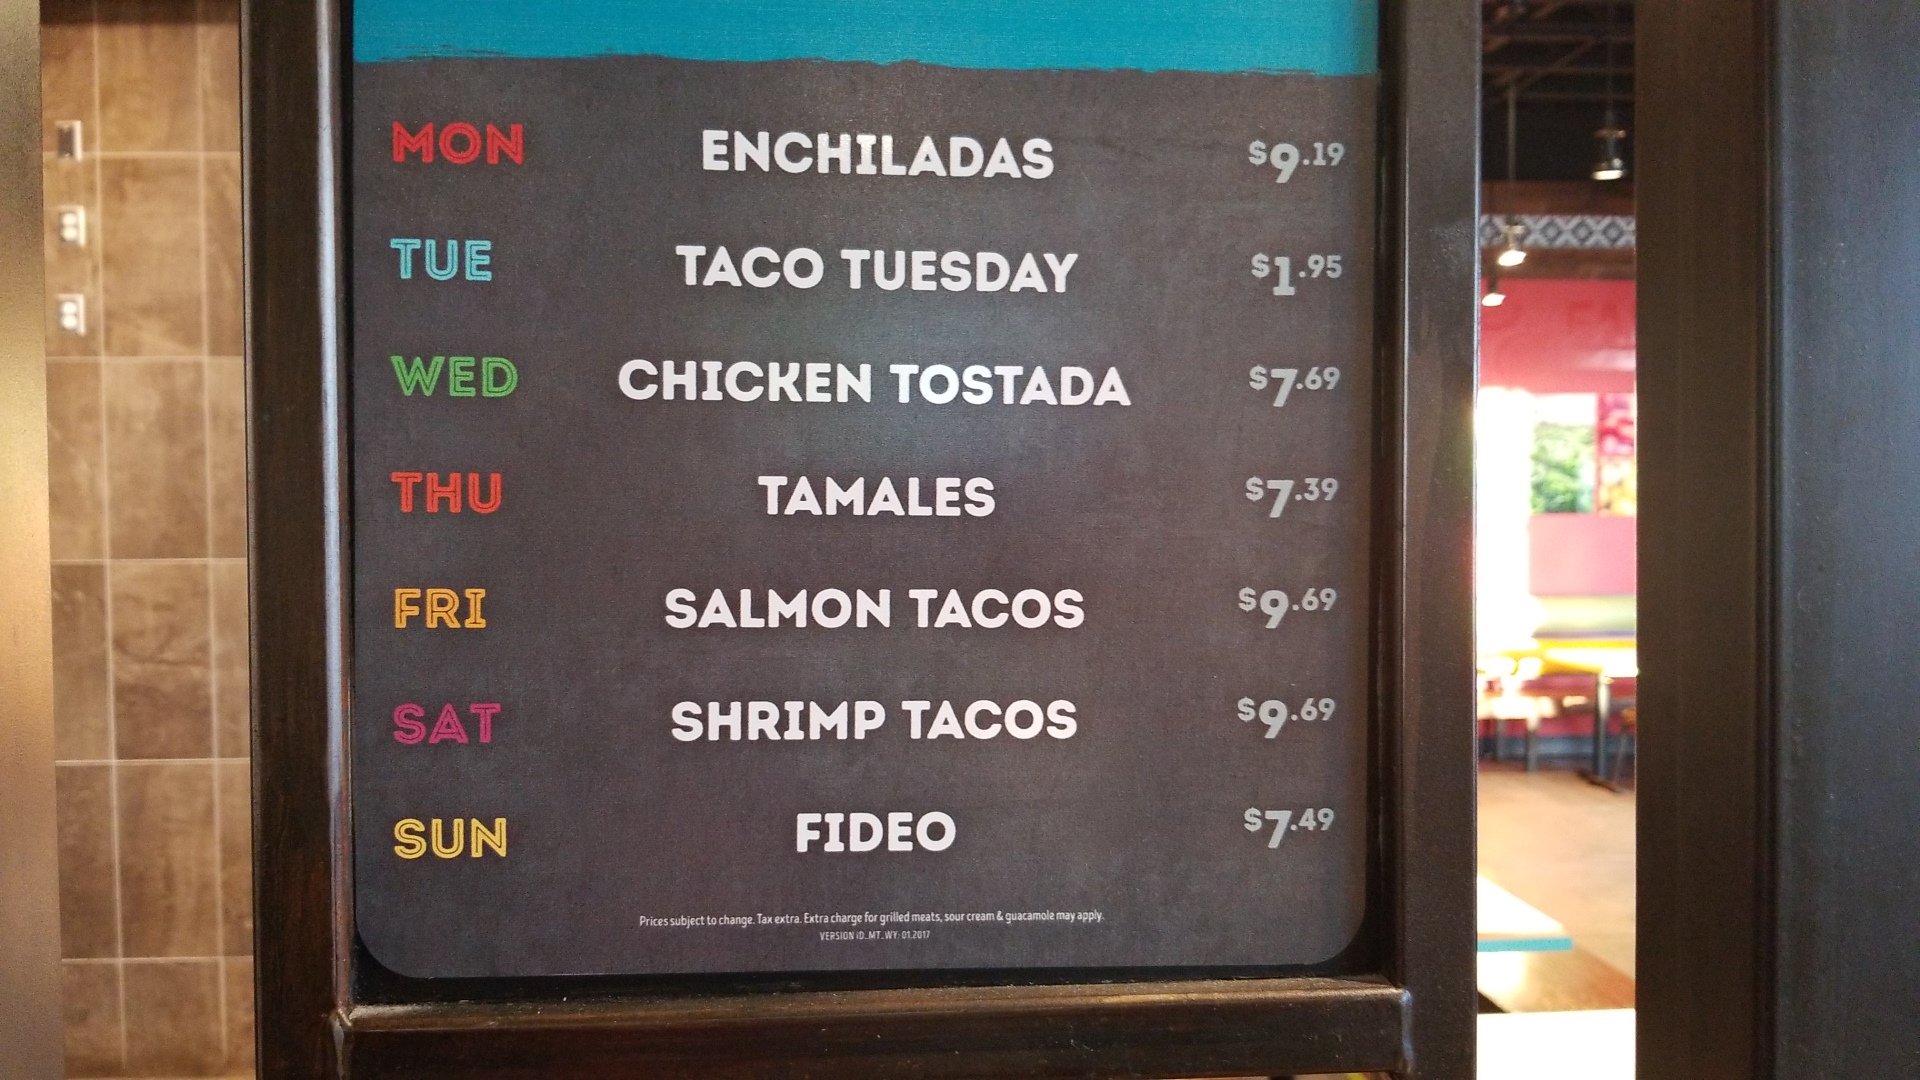 MON ENCHILADAS $9.19
TUE TACO TUESDAY $1.95
WED CHICKEN TOSTADA $7.69
THU TAMALES $7.39
FRI SALMON TACOS $9.69
SAT SHRIMP TACOS $9.69
SUN FIDEO $7.49
Prices subject to change. Tax extra. Extra charge for grilled meats, sour cream & guacamole may apply.
VERSION ID_MT_WY: 01.2017